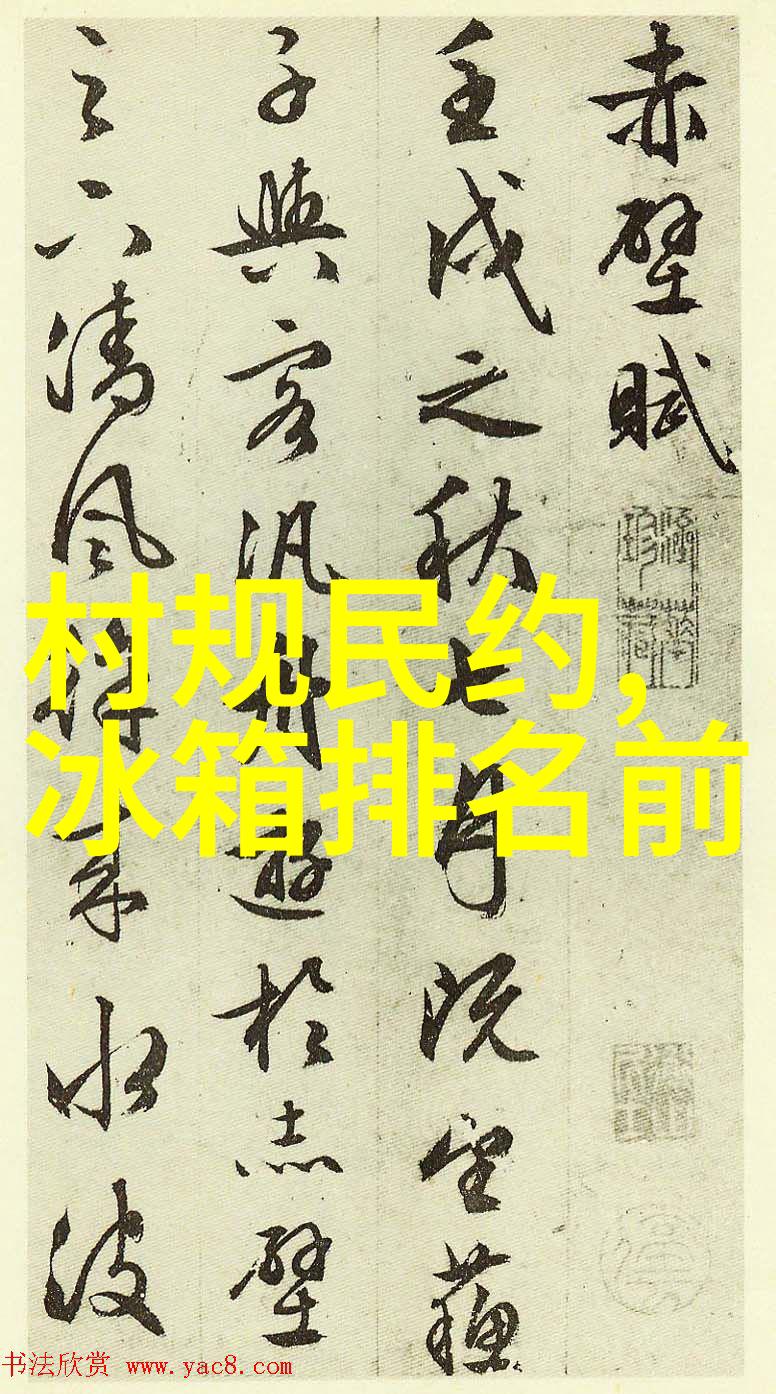 赤壁賦
壬戌之秋七月既望蘇
子與客汎舟遊於赤壁
之下清風徐來水波
村规民约,
冰箱排名前
书法欣赏 www.yac8.com